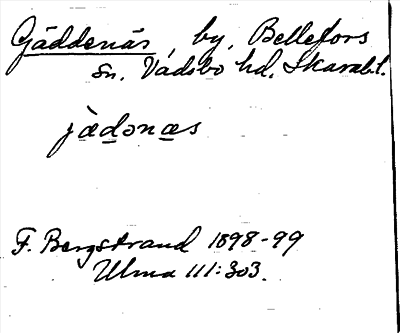 Gäddenäs, by, Bellefors
sn. Vadsbo hd. Skarab.l.
jæ̀dənæs
F. Bergstrand 1898-99
Ulma 111:303.